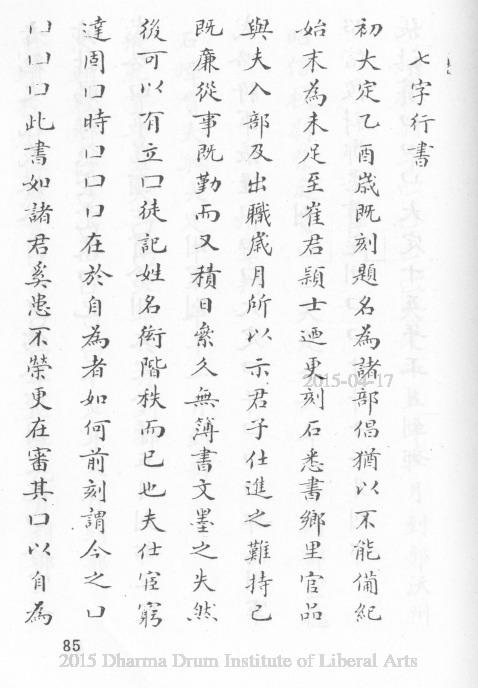 七字行書
初大定乙酉歳既刻題名為諸部倡猶以不能備紀
始末為未足至崔君穎士迺更刻石悉書鄉里官品
與夫入部及出職歳月所以示君子仕進之難持己
既廉從事既勤而又積日絫久無簿書文墨之失然
後可以有立口徒記姓名銜階秩而已也夫仕宦窮
達固口時口口口在於自為者如何前刻謂今之口
口口口此書如諸君奚患不榮更在審其口以自為
85
2015-04-17
2015 Dharma Drum Institute of Liberal Arts